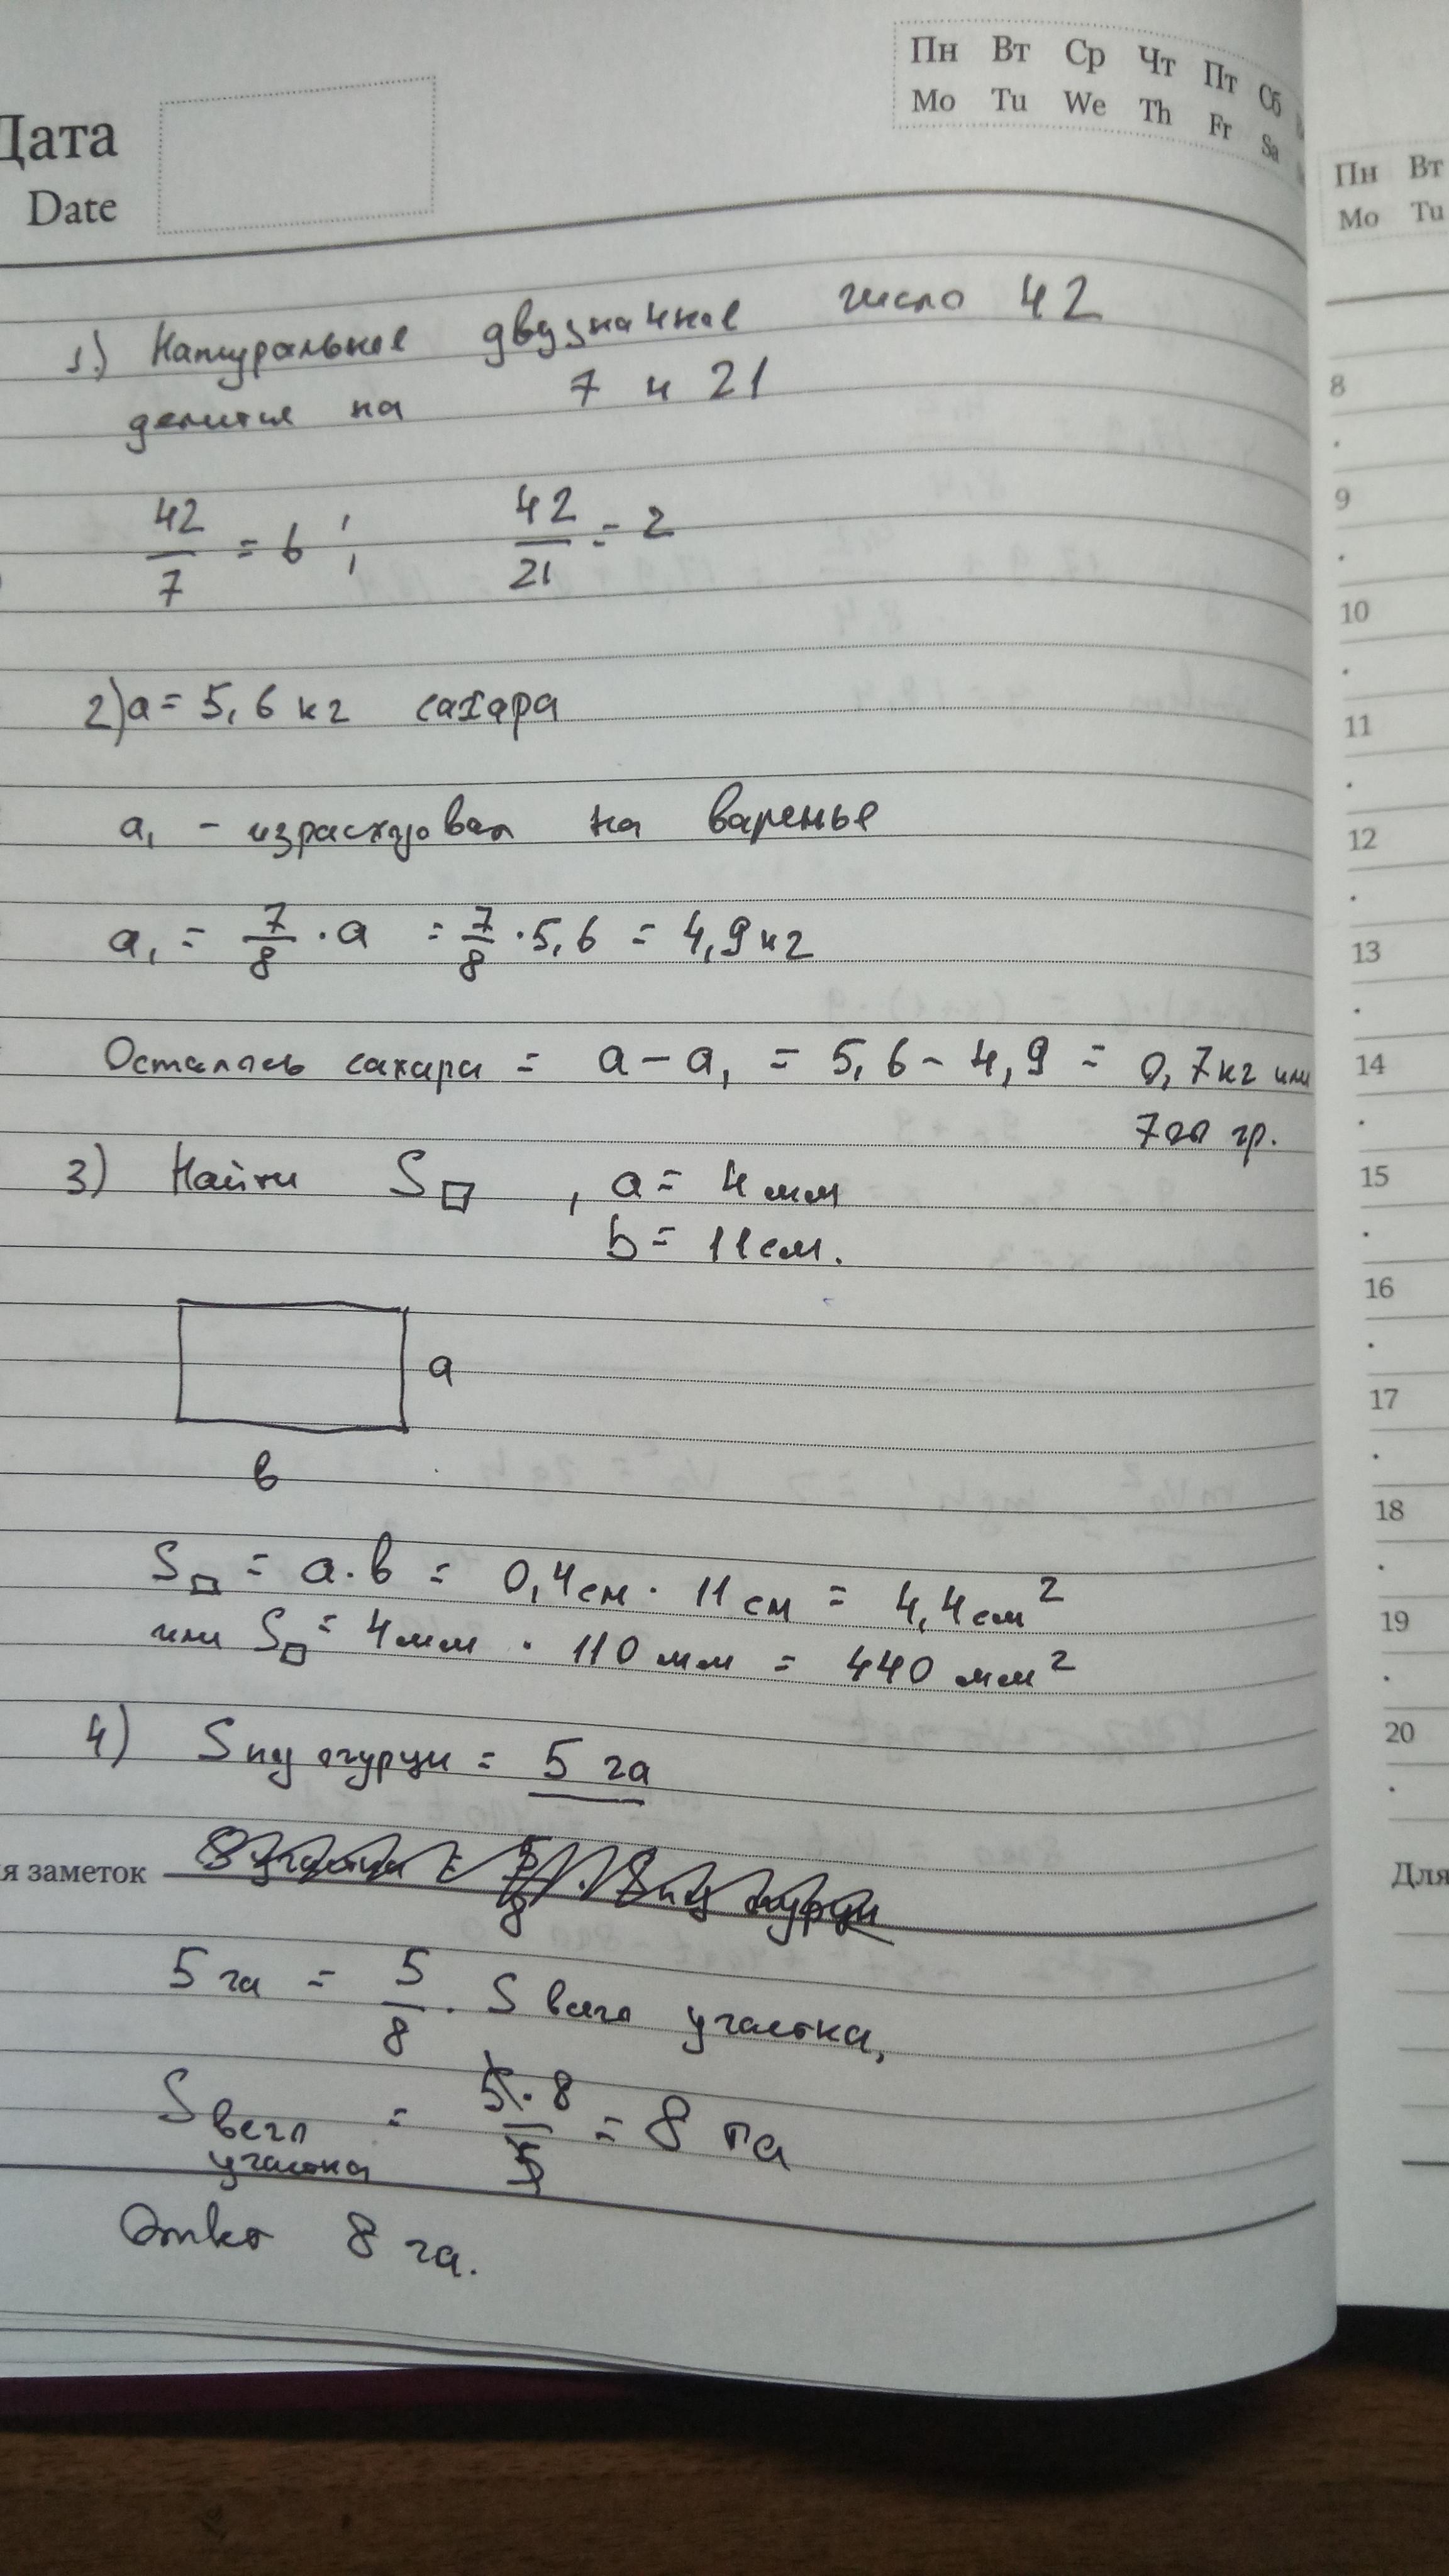 Дата
Date
Пн Вт Ср Чт Пт Сб
Mo Tu We Th Fr Sa
Пн Вт
Mo Tu
1.) Натуральное двузначное число 42
делится на 7 и 21
42/7 = 6 ; 42/21 = 2
2) a = 5,6 кг сахара
a₁ - израсходовал на варенье
a₁ = 7/8 · a = 7/8 · 5,6 = 4,9 кг
Осталось сахара = a - a₁ = 5,6 - 4,9 = 0,7 кг или
700 гр.
3) Найти S▱ , a = 4 мм
b = 11 см.
a
в
S▱ = a·в = 0,4 см · 11 см = 4,4 см²
или S▱ = 4 мм · 110 мм = 440 мм²
4) S под огурцы = 5 га
я заметок
5 га = 5/8 · S всего участка,
S всего участка = 5·8/5 = 8 га
Ответ 8 га.
8
9
10
11
12
13
14
15
16
17
18
19
20
Для